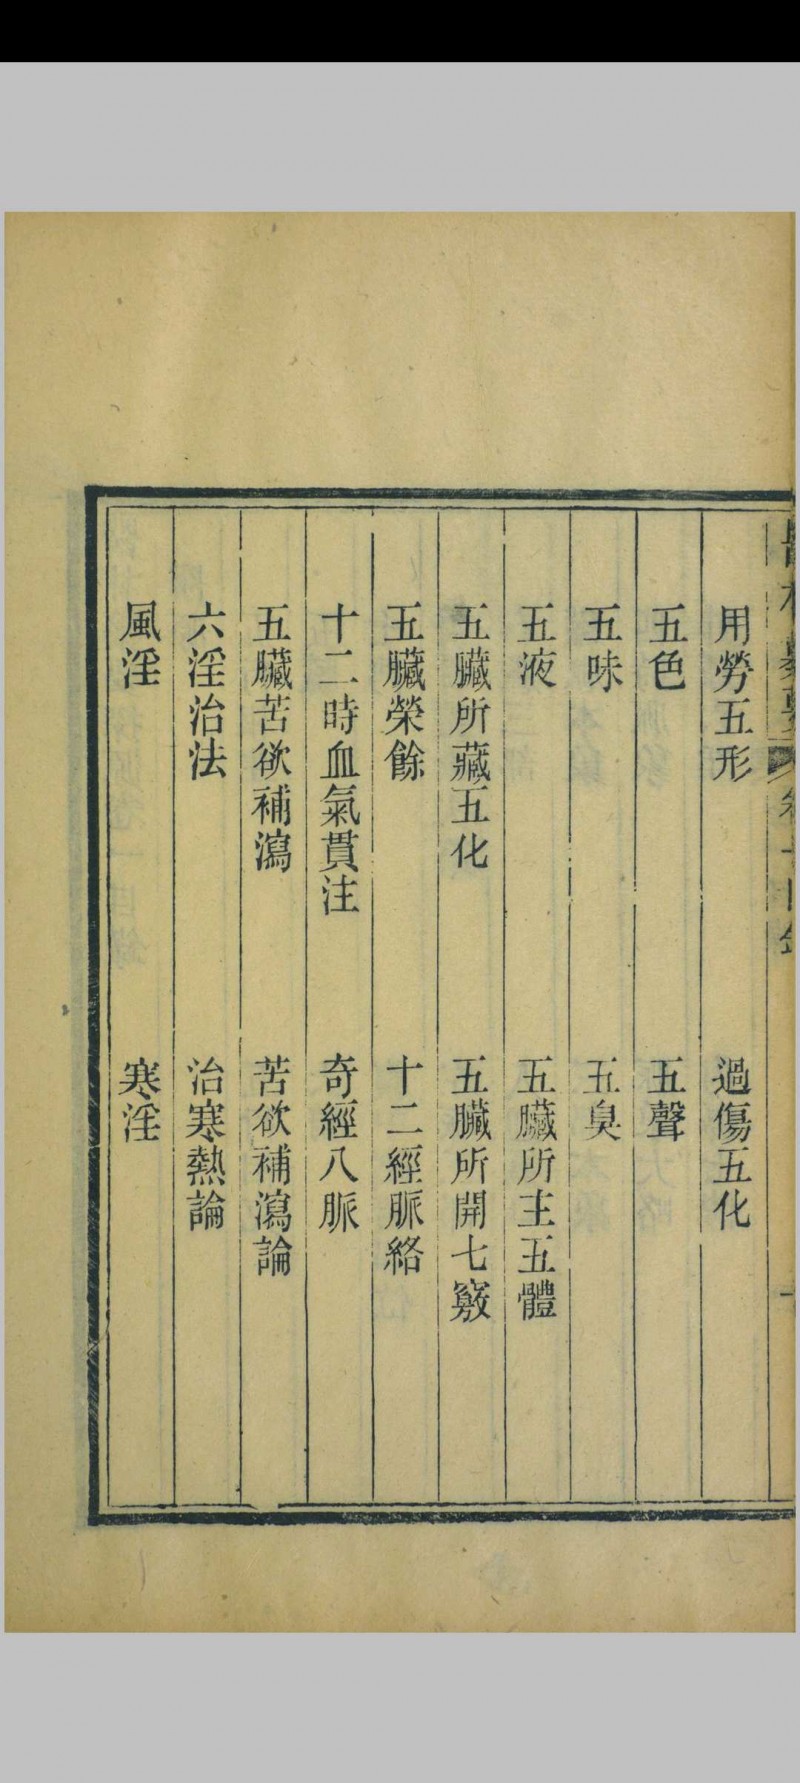 用勞五形　過傷五化
五色　五聲
五味　五臭
五液　五臟所主五體
五臟所藏五化　五臟所開七竅
五臟榮餘　十二經脈絡
十二時血氣貫注　奇經八脈
五臟苦欲補瀉　苦欲補瀉論
六淫治法　治寒熱論
風淫　寒淫